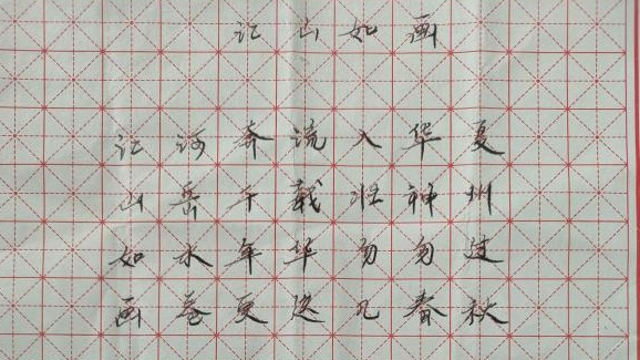 江山如画
江河奔流入华夏
山岳千载壮神州
如水年华匆匆过
画卷更迭几春秋